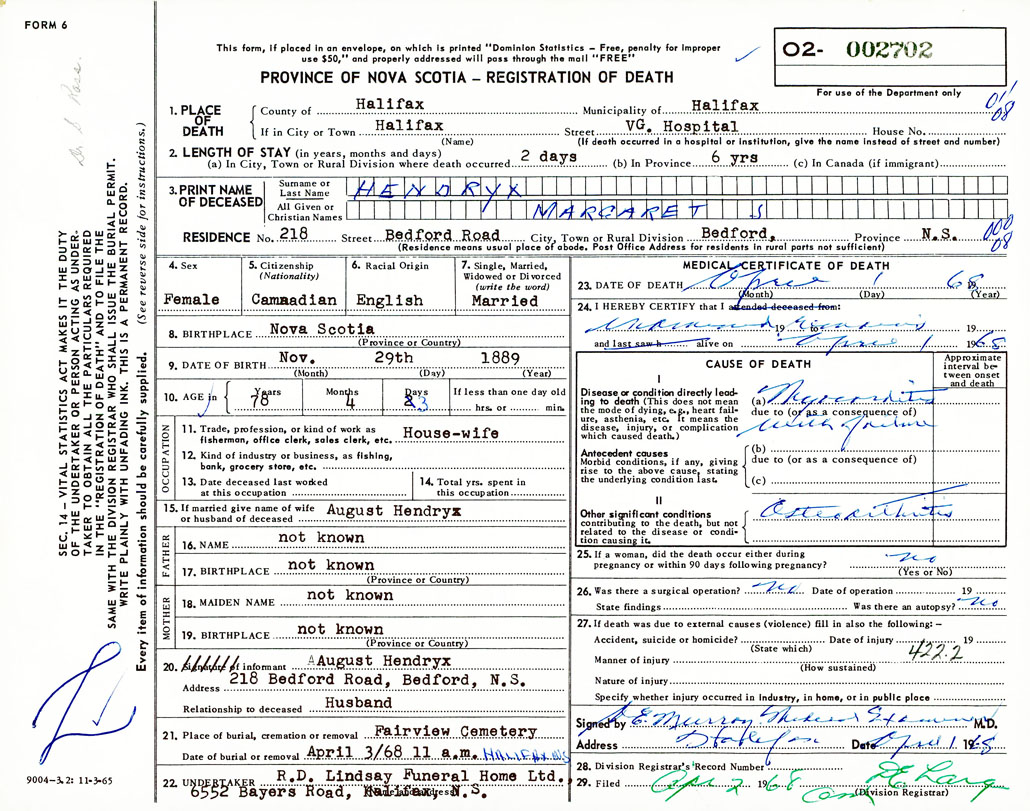 FORM 6
This form, if placed in an envelope, on which is printed "Dominion Statistics – Free, penalty for improper
use $50," and properly addressed will pass through the mail "FREE"
PROVINCE OF NOVA SCOTIA – REGISTRATION OF DEATH
02- 002702
For use of the Department only
Dr. S. Ross.
SEC. 14 – VITAL STATISTICS ACT MAKES IT THE DUTY
OF THE UNDERTAKER OR PERSON ACTING AS UNDER-
TAKER TO OBTAIN ALL THE PARTICULARS REQUIRED
IN THE "REGISTRATION OF DEATH" AND TO FILE THE
SAME WITH THE DIVISION REGISTRAR WHO SHALL ISSUE THE BURIAL PERMIT.
WRITE PLAINLY WITH UNFADING INK. THIS IS A PERMANENT RECORD.
Every item of information should be carefully supplied. (See reverse side for instructions.)
1. PLACE OF DEATH
County of Halifax Municipality of Halifax
011
08
If in City or Town Halifax Street VG. Hospital House No.
(Name) (If death occurred in a hospital or institution, give the name instead of street and number)
2. LENGTH OF STAY (in years, months and days)
(a) In City, Town or Rural Division where death occurred 2 days (b) In Province 6 yrs (c) In Canada (if immigrant)
3. PRINT NAME OF DECEASED
Surname or Last Name HENDRYX
All Given or Christian Names MARGARET S
RESIDENCE No. 218 Street Bedford Road City, Town or Rural Division Bedford, Province N.S.
000
08
(Residence means usual place of abode. Post Office Address for residents in rural parts not sufficient)
4. Sex
Female
5. Citizenship
(Nationality)
Cammadian
6. Racial Origin
English
7. Single, Married,
Widowed or Divorced
(write the word)
Married
8. BIRTHPLACE Nova Scotia
(Province or Country)
9. DATE OF BIRTH Nov. 29th 1889
(Month) (Day) (Year)
10. AGE in
Years Months Days If less than one day old
78 4 3 hrs. or min.
OCCUPATION
11. Trade, profession, or kind of work as
fisherman, office clerk, sales clerk, etc. House-wife
12. Kind of industry or business, as fishing,
bank, grocery store, etc.
13. Date deceased last worked
at this occupation
14. Total yrs. spent in
this occupation
15. If married give name of wife
or husband of deceased August Hendryx
FATHER
16. NAME not known
17. BIRTHPLACE not known
(Province or Country)
MOTHER
18. MAIDEN NAME not known
19. BIRTHPLACE not known
(Province or Country)
20. Signature of informant August Hendryx
Address 218 Bedford Road, Bedford, N.S.
Relationship to deceased Husband
21. Place of burial, cremation or removal Fairview Cemetery
Date of burial or removal April 3/68 11 a.m. HALIFAX N/S
22. UNDERTAKER R.D. Lindsay Funeral Home Ltd.
6552 Bayers Road, Halifax, N.S.
9004-3.2: 11-3-65
MEDICAL CERTIFICATE OF DEATH
23. DATE OF DEATH April 1 1968
(Month) (Day) (Year)
24. I HEREBY CERTIFY that I attended deceased from:
19 to 19
and last saw h alive on April 1 1968
CAUSE OF DEATH
Approximate
interval be-
tween onset
and death
I
Disease or condition directly lead-
ing to death (This does not mean
the mode of dying, e.g., heart fail-
ure, asthenia, etc. It means the
disease, injury, or complication
which caused death.)
(a) Myocarditis
due to (or as a consequence of)
with failure
Antecedent causes
Morbid conditions, if any, giving
rise to the above cause, stating
the underlying condition last.
(b)
due to (or as a consequence of)
(c)
II
Other significant conditions
contributing to the death, but not
related to the disease or condi-
tion causing it.
Osteoarthritis
25. If a woman, did the death occur either during
pregnancy or within 90 days following pregnancy? no
(Yes or No)
26. Was there a surgical operation? No Date of operation 19
State findings Was there an autopsy? No
27. If death was due to external causes (violence) fill in also the following: –
Accident, suicide or homicide? Date of injury 19
(State which)
422.2
Manner of injury
(How sustained)
Nature of injury
Specify whether injury occurred in industry, in home, or in public place
Signed by E Murray Medical Examiner M.D.
Address Halifax Date April 1 1968
28. Division Registrar's Record Number
29. Filed Apr 2 1968
(Division Registrar)